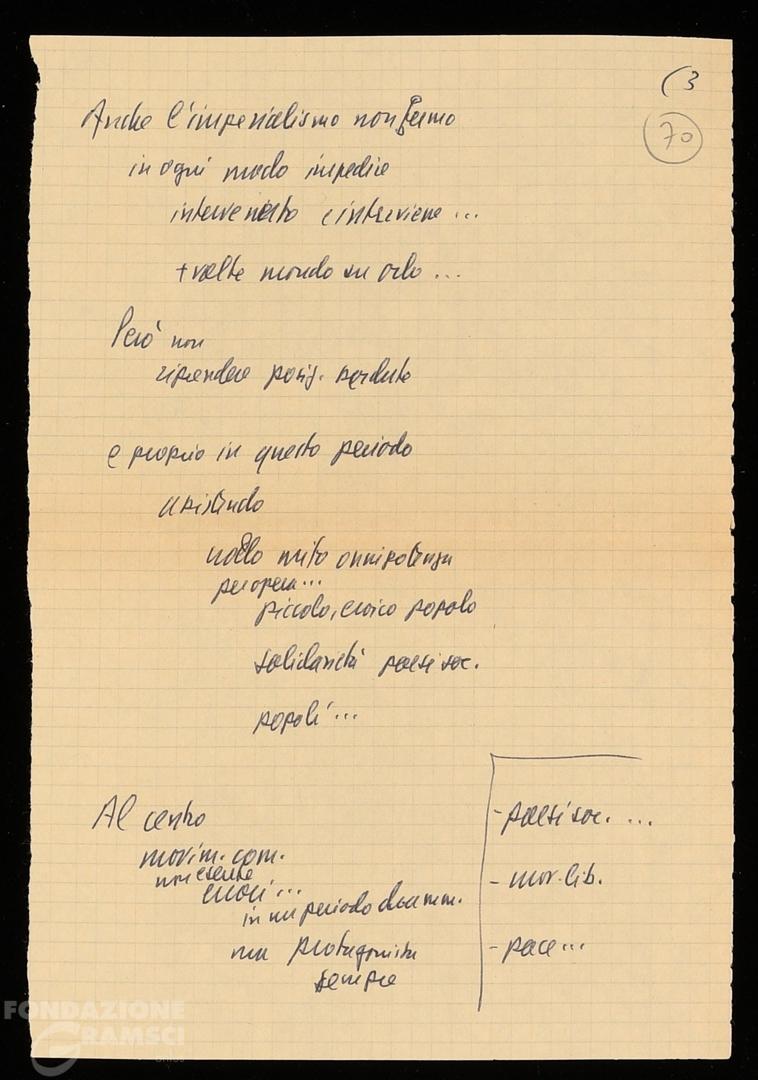 (3
70
Anche l'imperialismo non fermo
in ogni modo impedire
intervenuto e interviene ...
+ volte mondo su orlo ...
Però non
riprendere posiz. perdute
e proprio in questo periodo
assistendo
crollo mito onnipotenza
per opera ...
piccolo, eroico popolo
solidarietà paesi soc.
popoli ...
Al centro
movim. com.
non esente
errori ...
in un periodo dramm.
ma protagonista
sempre
- paesi soc. ...
- mov. lib.
- pace ...
FONDAZIONE
GRAMSCI